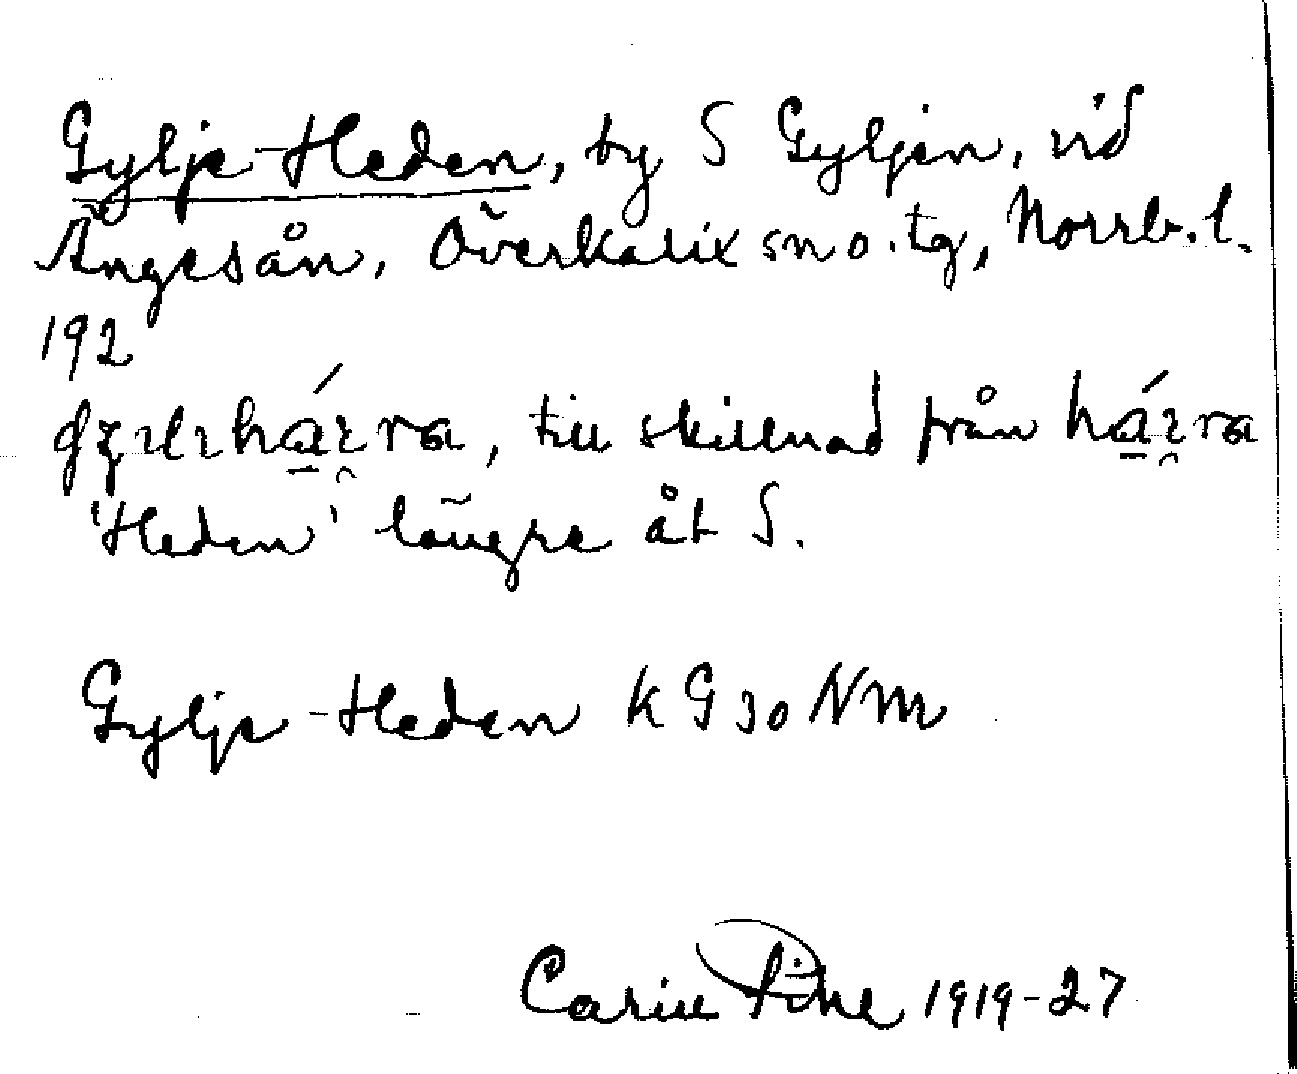 Gylje-Heden, by S Gyljen, vid
Ängesån, Överkalix sn o. tg, Norrb. l.
192
till skillnad från
'Heden' längre åt S.
Gylje-Heden K G 30 NM
Carin Pihl 1919-27